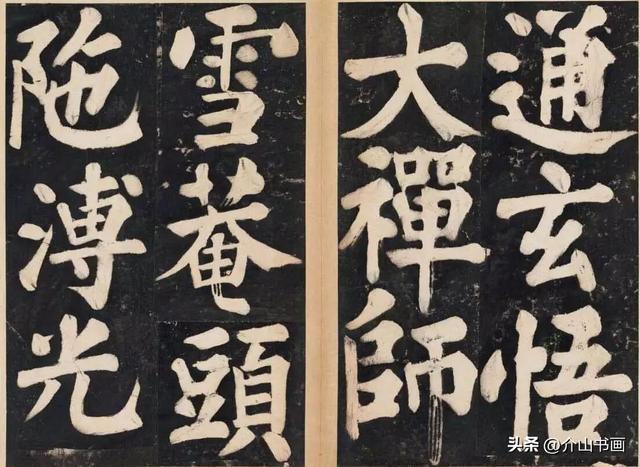 通玄悟
大禪師
雪菴頭
陁溥光
头条 @介山书画